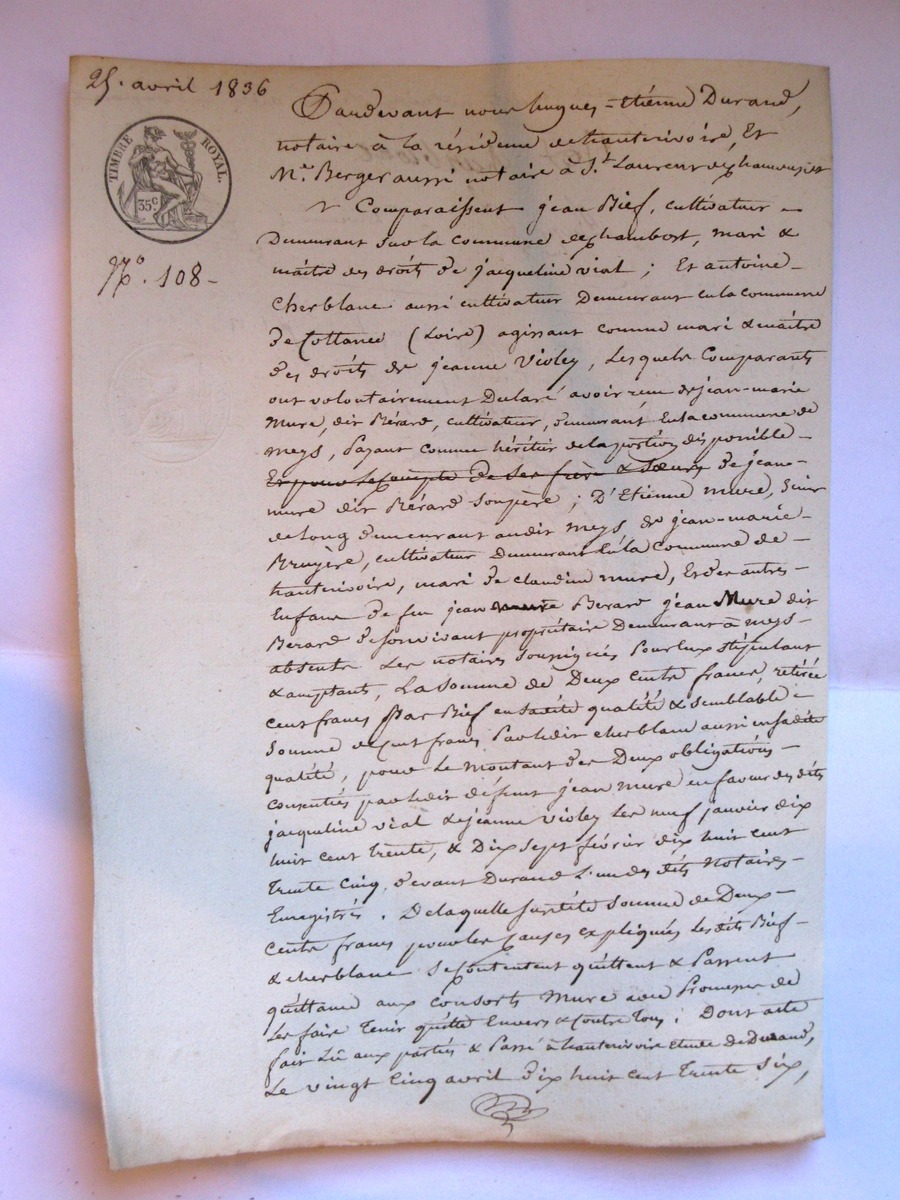 25. avril 1836
TIMBRE ROYAL.
35c.
N.o 108-
Pardevant nous hugues = étienne Durand,
notaire à la résidence de hauterivoire, Et
M.re Berger aussi notaire à S.t Laurent de chamousset
Comparaissent jean Bief, cultivateur -
Demeurant sur la commune de chambost, mari &
maitre des droits de jacqueline vial ; Et antoine -
Cherblanc aussi cultivateur Demeurant en la commune
de Cottance (Loire) agissant comme mari & maitre
des droits de jeanne Violey, Lesquels Comparants
ont volontairement Déclaré avoir reçu de jean-marie
Mure, dit Bérard, cultivateur, demeurant en la commune de
meys, Payant comme héritier de la portion disponible -
Et pour le compte de ses frère & soeurs de jean-
mure dit Bérard son père ; D'Etienne mure,
de Long demeurant audit meys & jean-marie -
Bruyère, cultivateur Demeurant en la Commune de -
hauterivoire, mari de claudine mure, Et des autres -
Enfans de feu jean mure Berard jean Mure dit
Berard de son vivant propriétaire Demeurant à meys -
absents Les notaires soussignés Pour eux stipulant
& acceptants, La somme de Deux cents francs, retirée
cent francs Par Bief en sadite qualité & semblable =
somme de cent francs Par ledit cherblanc aussi en sadite
qualité, pour Le montant des Deux obligations -
consenties par ledit défunt jean mure en faveur des dits
jacqueline vial & jeanne violey Les neuf janvier dix
huit cent trente, & Dix sept février dix huit cent
Trente Cinq, devant Durand L'un des dits Notaires -
Enregistrés. De laquelle susdite somme de Deux -
Cents francs pour les causes expliquées Les dits Bief -
& cherblanc se contentent quittent & Passent
quittance aux consorts mure avec Promesse de
Les faire Tenir quitte Envers & Contre Tous ; Dont acte
fait Lû aux parties & Passé à hauterivoire Etude de Durand,
Le vingt cinq avril Dix huit cent Trente six,